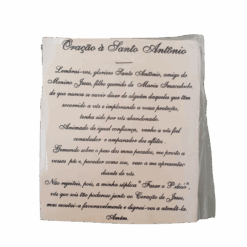 Oração à Santo Antônio
Lembrai-vos, glorioso Santo Antônio, amigo do
Menino Jesus, filho querido de Maria Imaculada,
de que nunca se ouviu dizer de alguém daqueles que têm
recorrido a vós e implorando a vossa proteção,
tenha sido por vós abandonado.
Animado de igual confiança, venho a vós fiel
consolador e amparador dos aflitos.
Gemendo sobre o peso dos meus pecados, me prostro a
vossos pés e, pecador como sou, ouso a me apresentar
diante de vós.
Não rejeiteis, pois, a minha súplica "Fazer o Pedido",
vós que sois tão poderoso junto ao Coração de Jesus,
mas escutai-a favoravelmente e dignai-vos a atendê-la.
Amém.